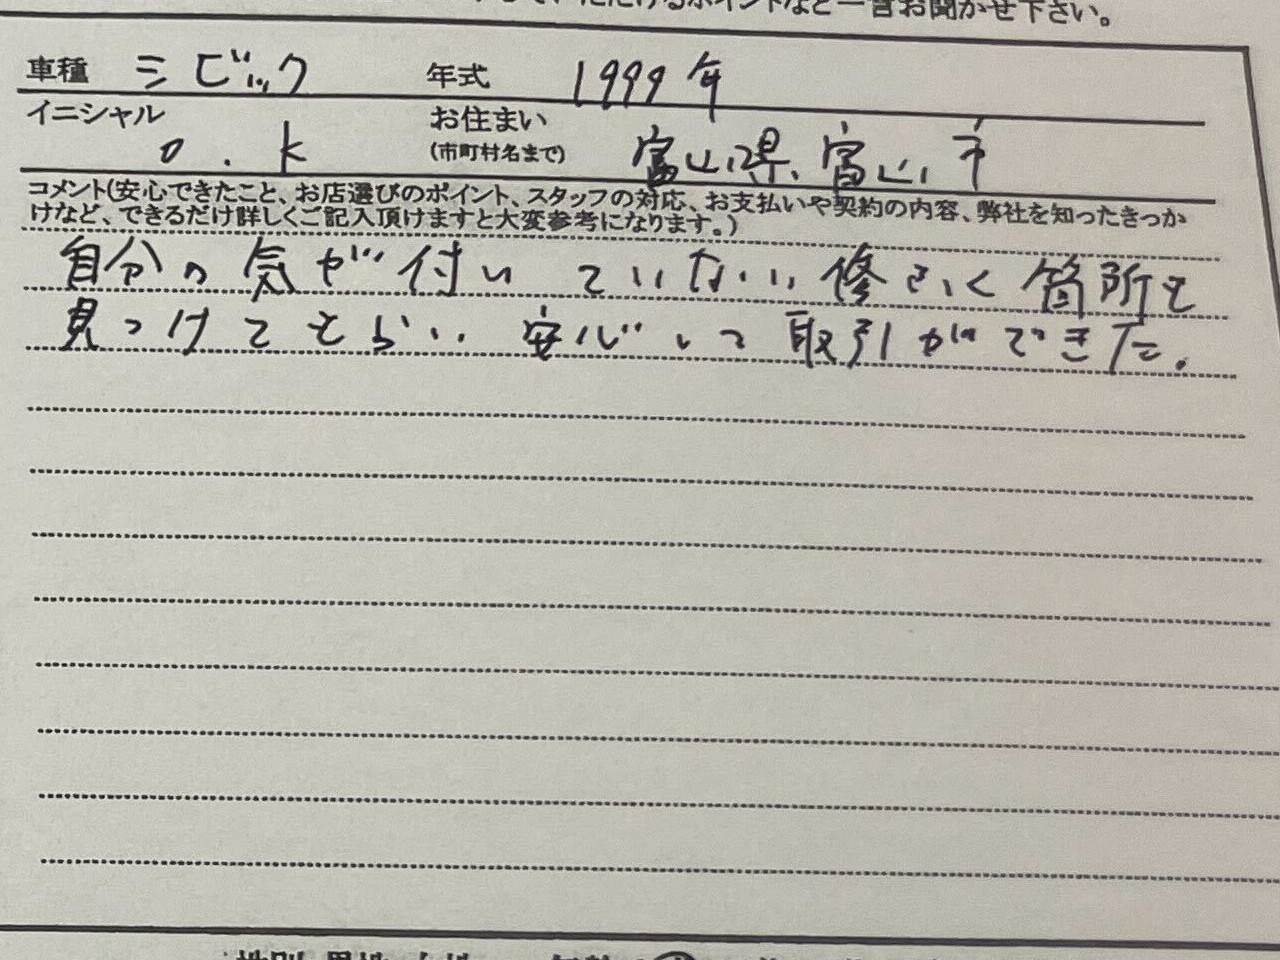 いただけるポイントなど一言お聞かせ下さい。
車種 シビック 年式 1999年
イニシャル O.K お住まい(市町村名まで) 富山県、富山市
コメント(安心できたこと、お店選びのポイント、スタッフの対応、お支払いや契約の内容、弊社を知ったきっか
けなど、できるだけ詳しくご記入頂けますと大変参考になります。)
自分の気が付いていない修ふく箇所も
見つけてもらい、安心して取引ができた。